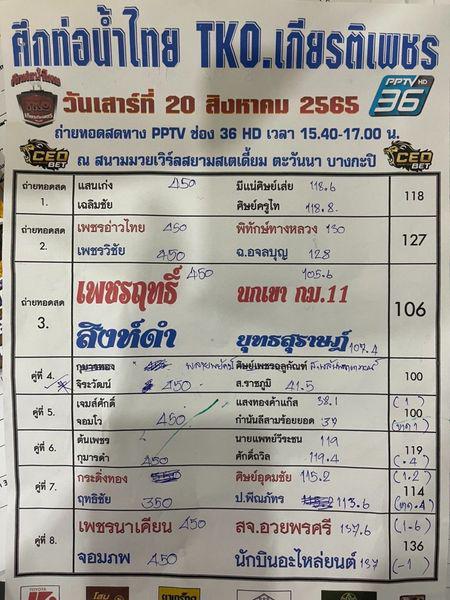 ศึกท่อน้ำไทย TKO.เกียรติเพชร
TKO
วันเสาร์ที่ 20 สิงหาคม 2565
PPTV HD
36
ถ่ายทอดสดทาง PPTV ช่อง 36 HD เวลา 15.40-17.00 น.
CEO BET
ณ สนามมวยเวิร์ลสยามสเตเดี้ยม ตะวันนา บางกะปิ
CEO BET
ถ่ายทอดสด 1.
แสนเก่ง 450 มีแน่ศิษย์เส่ย 118.6
เฉลิมชัย ศิษย์ครูไท 118.8
118
ถ่ายทอดสด 2.
เพชรอ่าวไทย 450 พิทักษ์ทางหลวง 130
เพชรวิชัย 450 ฉ.อจลบุญ 128
127
ถ่ายทอดสด 3.
เพชรฤทธิ์ 450 นกเขา กม.11 105.6
สิงห์ดำ ยุทธสุราษฎ์ 107.4
106
คู่ที่ 4.
กุมารทอง ศิษย์เพชรฤลูกัณฑ์
จิระวัฒน์ 450 ส.ราชภูมิ 41.5
100
คู่ที่ 5.
เจมส์ศักดิ์ แสงทองค้าแก๊ส 38.1 (1)
จอมโว 450 กำนันลีสามร้อยยอด 37
100
คู่ที่ 6.
ต้นเพชร นายแพทย์วีระชน 119
กุมารดำ 450 ศักดิ์ถวิล 119.4 (.4)
119
คู่ที่ 7.
กระดิ่งทอง ศิษย์อุดมชัย 115.2 (1.2)
ฤทธิชัย 350 ป.พีณภัทร 113.6
114
คู่ที่ 8.
เพชรนาเคียน 450 สจ.อวยพรศรี 137.6 (1.6)
จอมภพ 450 นักบินอะไหล่ยนต์ 137 (-1)
136
TOYOTA